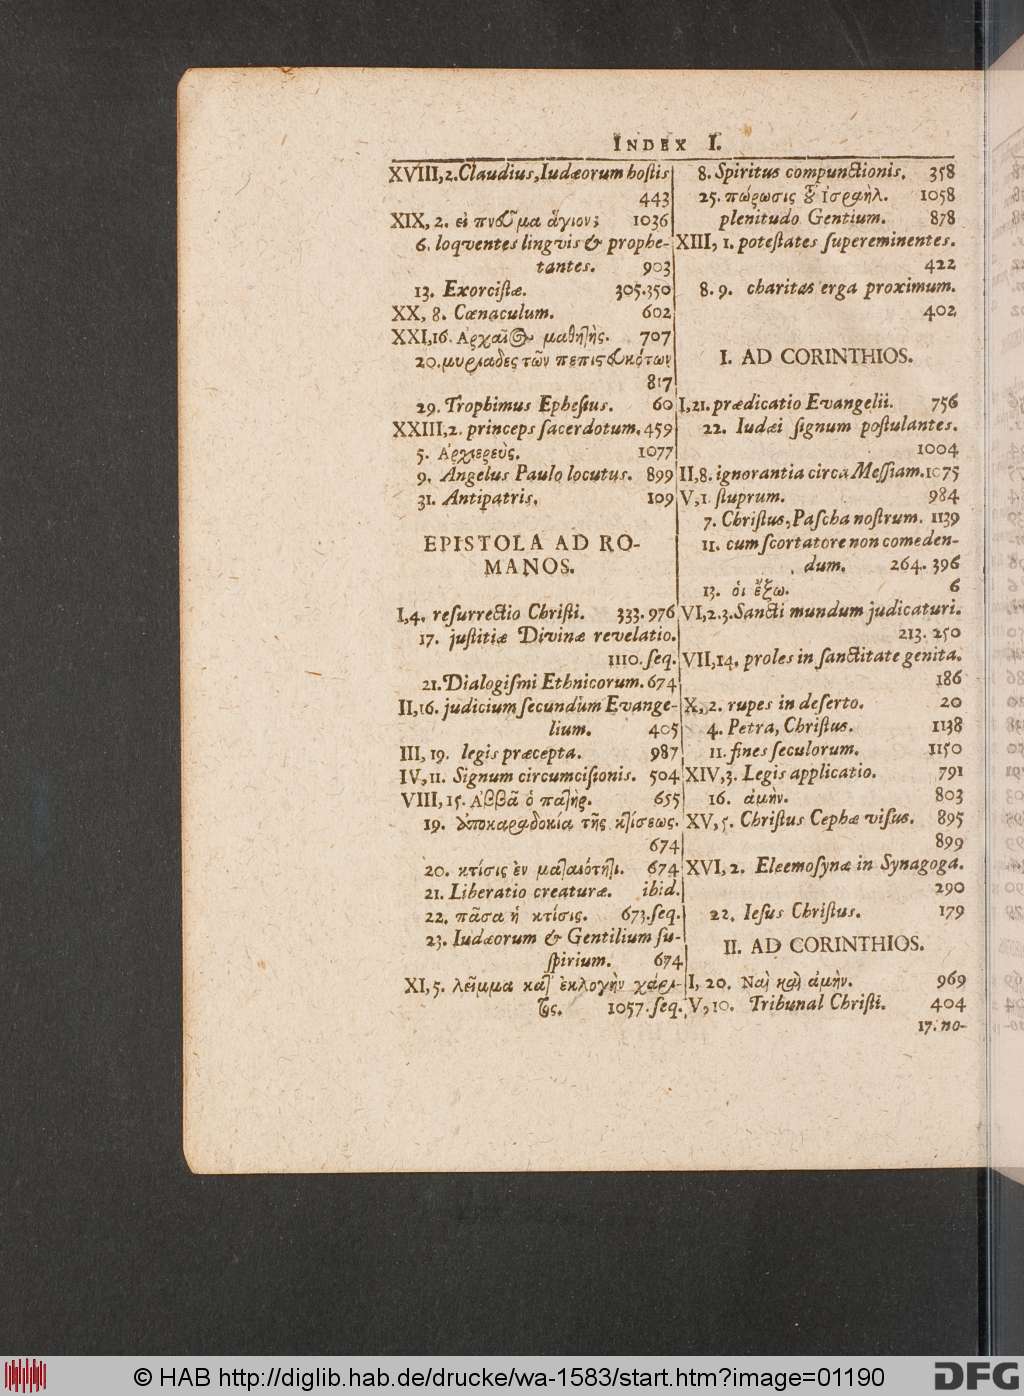 INDEX I.
XVIII,2. Claudius, Iudæorum hostis
443
XIX, 2. εἰ πνεῦμα ἅγιον; 1036
6. loqventes lingvis & prophe-
tantes. 903
13. Exorcistæ. 305.350
XX, 8. Cœnaculum. 602
XXI,16. Ἀρχαῖος μαθητής. 707
20. μυριάδες τῶν πεπιστευκότων
817
29. Trophimus Ephesius. 60
XXIII,2. princeps sacerdotum. 459
5. Ἀρχιερεὺς. 1077
9. Angelus Paulo locutus. 899
31. Antipatris. 109
EPISTOLA AD RO-
MANOS.
I,4. resurrectio Christi. 333.976
17. justitiæ Divinæ revelatio.
1110. seq.
21. Dialogismi Ethnicorum. 674
II,16. judicium secundùm Evange-
lium. 405
III, 19. legis præcepta. 987
IV, 11. Signum circumcisionis. 504
VIII, 15. Ἀββᾶ ὁ πατὴρ. 655
19. ἀποκαραδοκία τῆς κτίσεως.
674
20. κτίσις ἐν ματαιότητι. 674
21. Liberatio creaturæ. ibid.
22. πᾶσα ἡ κτίσις. 673. seq.
23. Iudæorum & Gentilium su-
spirium. 674
XI, 5. λεῖμμα κατ' ἐκλογὴν χάρι-
τος. 1057. seq.
8. Spiritus compunctionis. 358
25. πώρωσις τοῦ Ἰσραήλ. 1058
plenitudo Gentium. 878
XIII, 1. potestates supereminentes.
422
8. 9. charitas erga proximum.
402
I. AD CORINTHIOS.
I,21. prædicatio Evangelii. 756
22. Iudæi signum postulantes.
1004
II,8. ignorantia circa Messiam. 1075
V,1. stuprum. 984
7. Christus, Pascha nostrum. 1139
11. cum scortatore non comeden-
dum. 264. 396
13. οἱ ἔξω. 6
VI,2.3. Sancti mundum judicaturi.
213. 250
VII,14. proles in sanctitate genita.
186
X, 2. rupes in deserto. 20
4. Petra, Christus. 1138
11. fines seculorum. 1150
XIV,3. Legis applicatio. 791
16. ἀμήν. 803
XV, 5. Christus Cephæ visus. 895
899
XVI, 2. Eleemosynæ in Synagoga.
290
22. Iesus Christus. 179
II. AD CORINTHIOS.
I, 20. Ναὶ καὶ ἀμήν. 969
V, 10. Tribunal Christi. 404
17. no-
© HAB http://diglib.hab.de/drucke/wa-1583/start.htm?image=01190
DFG